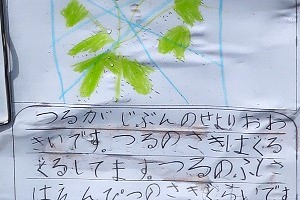 つるがじぶんのせよりおお
きいです。つるのさきはくる
ぐるしてます。つるのふとさ
はえんぴつのさきぐらいです